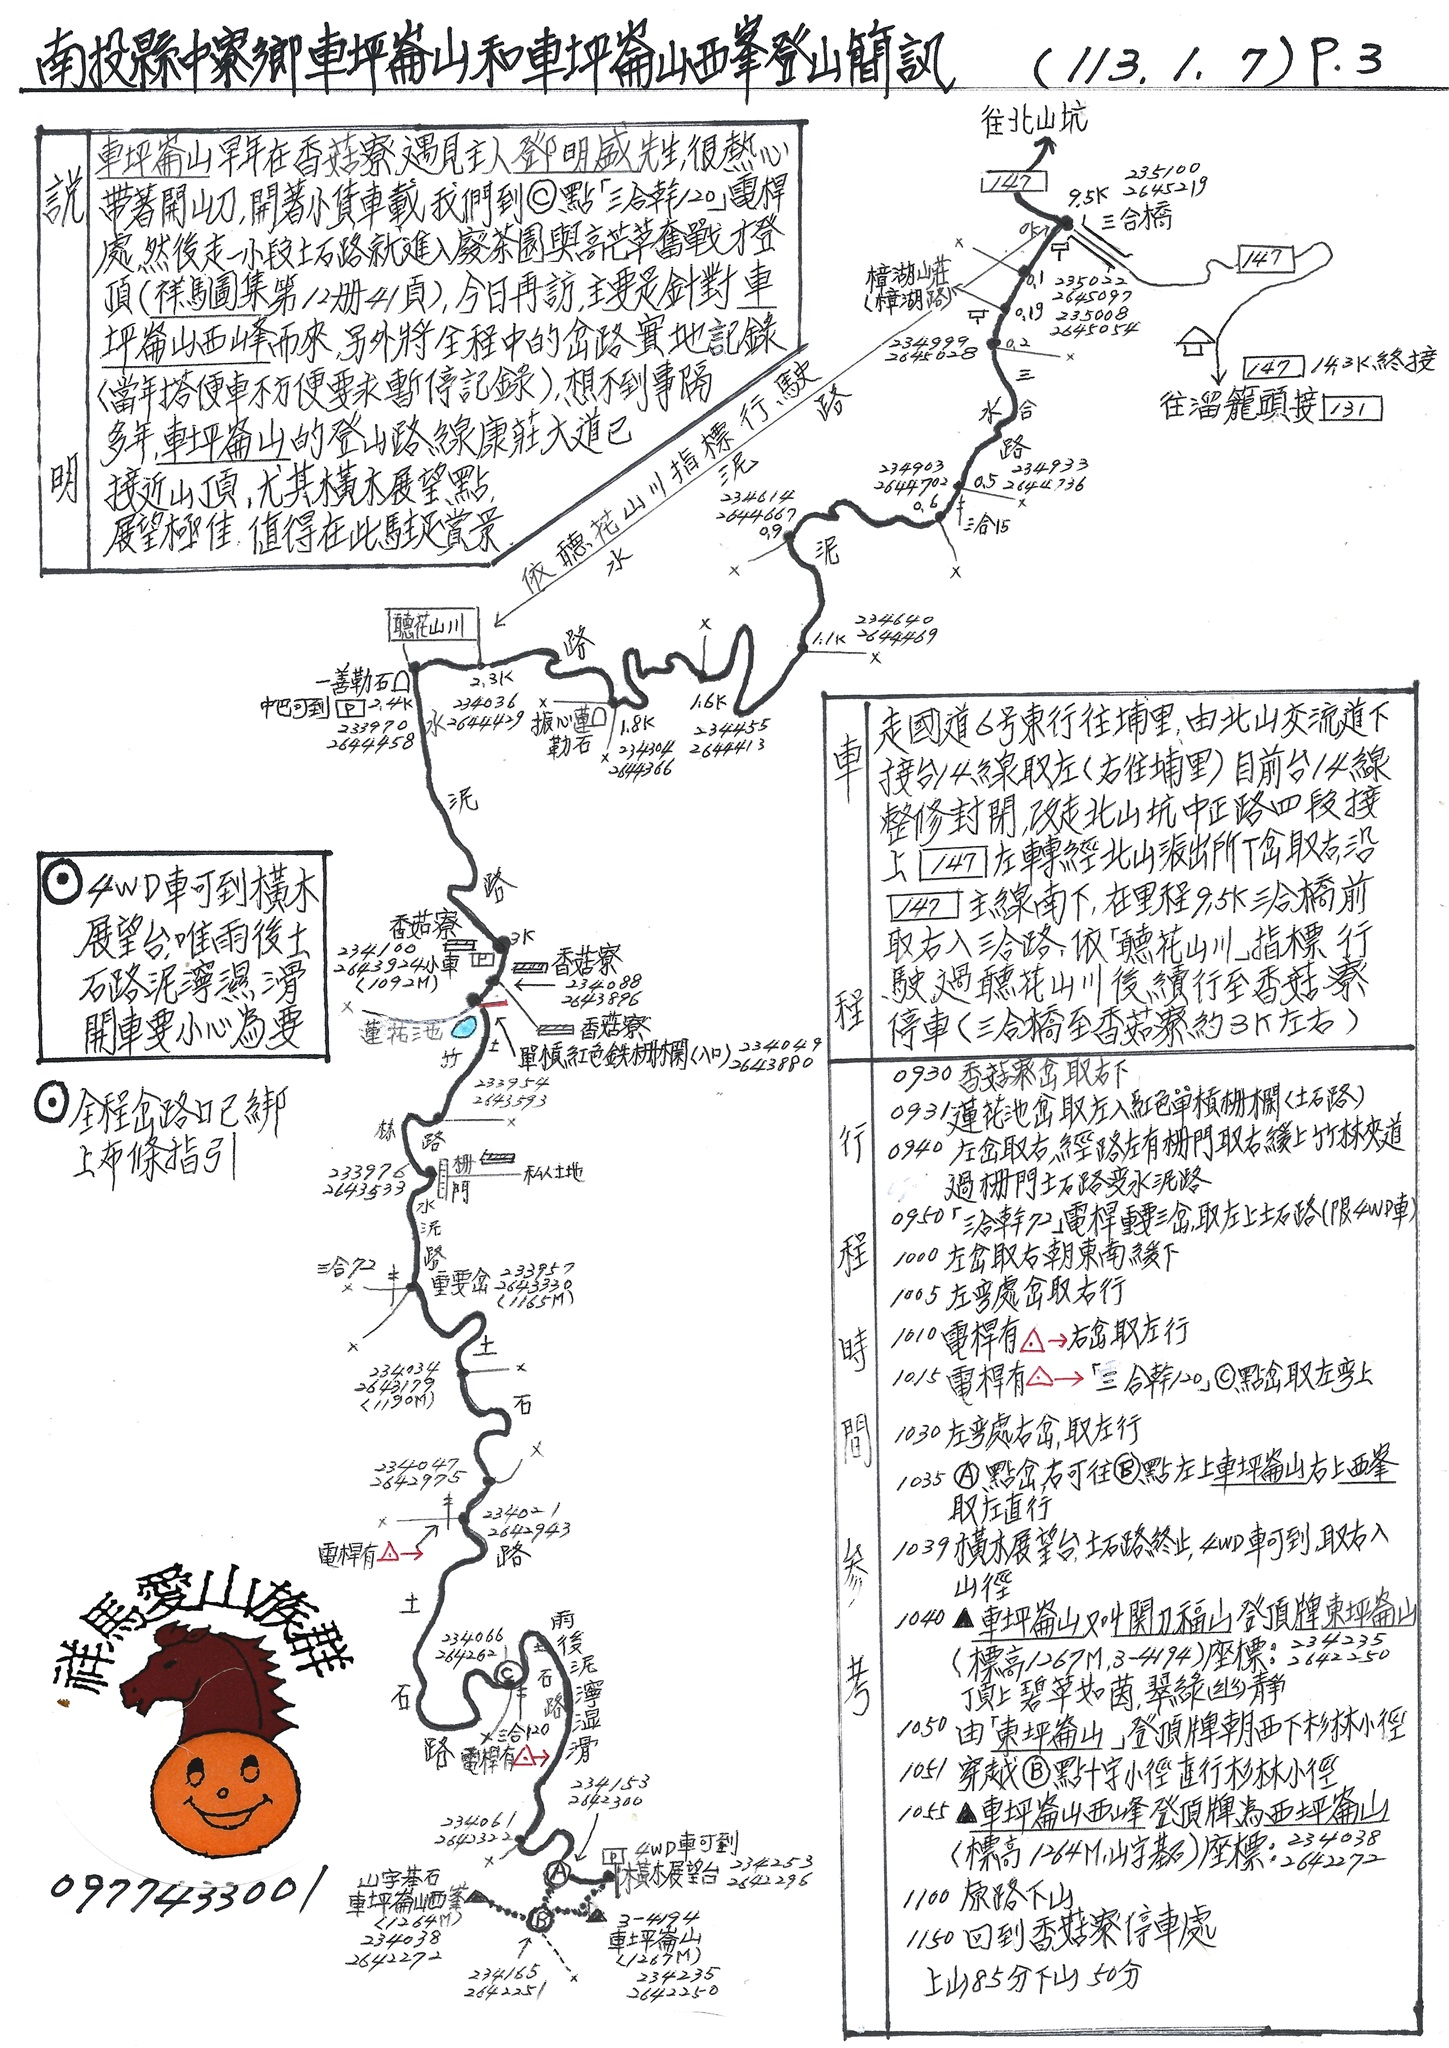 南投縣中寮鄉車坪崙山和車坪崙山西峯登山簡訊 (113.1.7) P.3
說明
車坪崙山早年在香菇寮遇見主人鄧明盛先生,很熱心
帶著開山刀,開著小貨車載我們到Ⓒ點「三合幹120」電桿
處,然後走一小段土石路就進入廢茶園與高芒草奮戰才登
頂(祥馬圖集第12册41頁),今日再訪,主要是針對車
坪崙山西山峰而來,另外將全程中的岔路實地記錄
(當年搭便車不方便要求暫停記錄),想不到事隔
多年,車坪崙山的登山路線康莊大道已
接近山頂,尤其橫木展望點,
展望極佳.值得在此駐足賞景.
往北山坑
147
9.5K
235100
2645219
三合橋
0K
147
樟湖山莊
(樟湖路)
0.1
235022
2645097
0.19
235008
2645054
234999
2645028
0.2
147 14.3K終接
往溜籠頭接 131
三合路
水泥路
依聽花山川指標行駛
234903
2644702
0.6
0.5
234933
2644736
三合15
234614
2644667
0.9
1.1K
234640
2644469
聽花山川
一善勒石
中巴可到 P 2.4K
233970
2644458
2.3K
234036
2644429
振心蓮
勒石
1.8K
234304
2644366
1.6K
234455
2644413
水泥路
⊙4WD車可到橫木
展望台,唯雨後土
石路泥濘濕滑
開車要小心為要
⊙全程岔路口已綁
上布條指引
香菇寮
3K
234100
2643924小車 P
(1092M)
香菇寮
234088
2643896
香菇寮
蓮花池
單槓紅色鉄栅欄(入口)
234049
2643880
竹林
土
路
233954
2643593
233976
2643533
栅門
私人土地
水泥路
三合72
重要岔
233957
2643330
(1165M)
土石路
234034
2643179
(1190M)
234047
2642975
234021
2642943
電桿有△→
土石路
234066
264262
Ⓒ
三合120
電桿有△→
土石路
雨後泥濘湿滑
234153
2642300
234061
2642322
Ⓐ
P 4WD車可到
橫木展望台
234253
2642296
山字基石
車坪崙山西峯
(1264M)
234038
2642272
Ⓑ
234165
2642251
3-4194
車坪崙山
(1267M)
234235
2642250
祥馬愛山族群
0977433001
車程
走國道6号東行往埔里,由北山交流道下
接台14線取左(右往埔里)目前台14線
整修封閉,改走北山坑中正路四段接
上 147 左轉經北山派出所丁岔取右,沿
147 主線南下,在里程9.5K三合橋前
取右入三合路,依「聽花山川」指標行
駛,過聽花山川後,續行至香菇寮
停車(三合橋至香菇寮約3K左右)
行程時間參考
0930 香菇寮岔取右下
0931 蓮花池岔取左入紅色單槓栅欄(土石路)
0940 左岔取右,經路左有栅門取右緩上竹林夾道
過栅門土石路变水泥路
0950「三合幹72」電桿重要三岔,取左上土石路(限4WD車)
1000 左岔取右朝東南緩下
1005 左弯處岔取右行
1010 電桿有△→右岔取左行
1015 電桿有△→「三合幹120」Ⓒ點岔取左弯上
1030 左弯處右岔,取左行
1035 Ⓐ點岔,右可往Ⓑ點左上車坪崙山右上西峯
取左直行
1039 橫木展望台,土石路終止,4WD車可到,取右入
山徑
1040 ▲車坪崙山又叫開刀福山登頂牌東坪崙山
(標高1267M,3-4194)座標:234235
2642250
頂上碧草如茵,翠綠幽靜
1050 由「東坪崙山」登頂牌朝西下杉林小徑
1051 穿越Ⓑ點十字小徑直行杉林小徑
1055 ▲車坪崙山西峰登頂牌為西坪崙山
(標高1264M,山字基石)座標:234038
2642272
1100 原路下山
1150 回到香菇寮停車處
上山85分下山50分